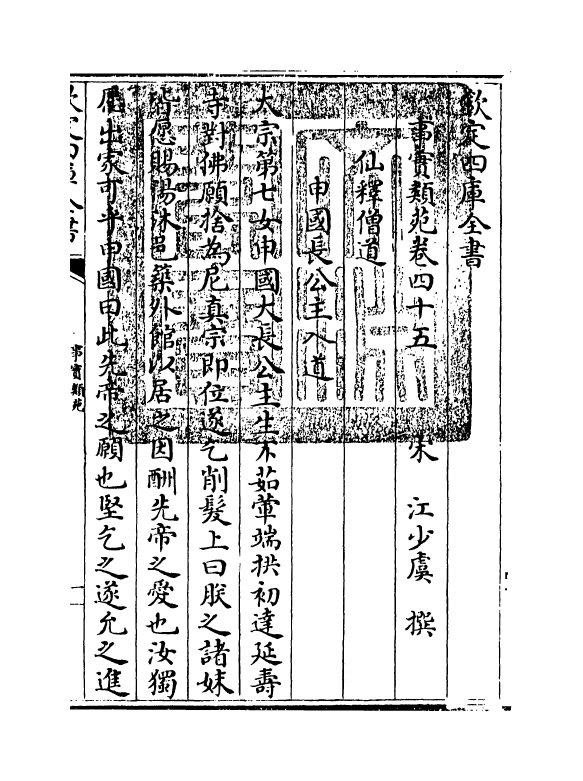 欽定四庫全書
事實類苑卷四十五　宋　江少虞　撰
仙釋僧道
申國長公主入道
太宗第七女申國大長公主生不茹葷端拱初達延壽
寺對佛願捨為尼真宗即位遂乞削髮上曰朕之諸妹
皆愿賜湯沐邑築外館以居之因酬先帝之愛也汝獨
愿出家可乎申國曰此先帝之願也堅乞之遂允之進
欽定四庫全書
事實類苑